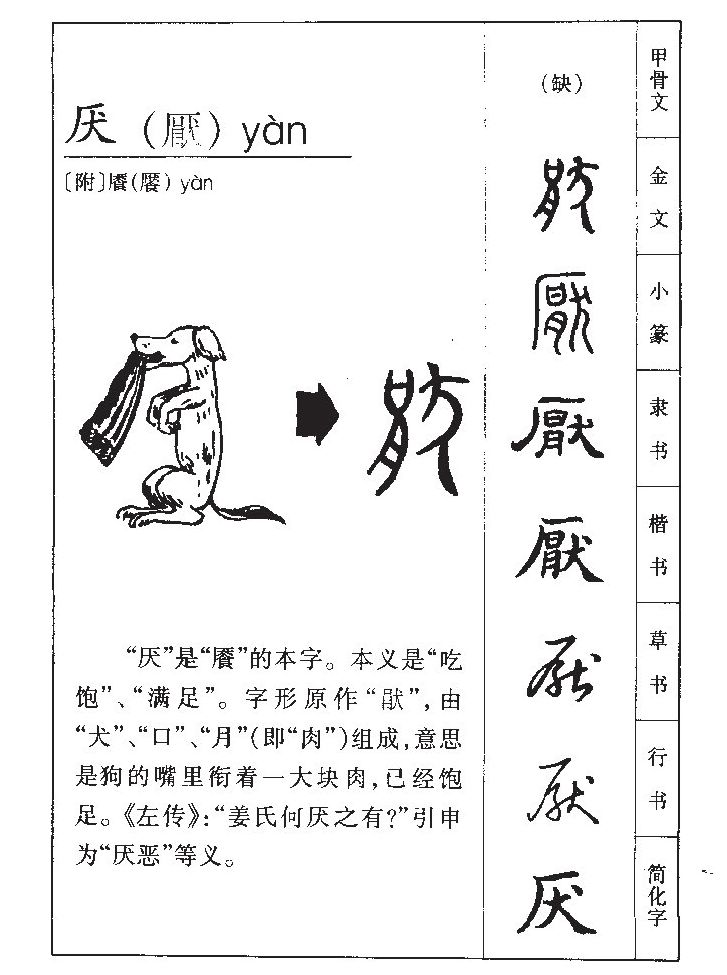 厌（厭）yàn
〔附〕餍(饜) yàn
“厌”是“餍”的本字。本义是“吃
饱”、“满足”。字形原作“猒”，由
“犬”、“口”、“月”(即“肉”)组成，意思
是狗的嘴里衔着一大块肉，已经饱
足。《左传》：“姜氏何厌之有?”引申
为“厌恶”等义。
（缺）
甲骨文
金文
厭
小篆
厭
隶书
厭
楷书
草书
行书
厌
简化字